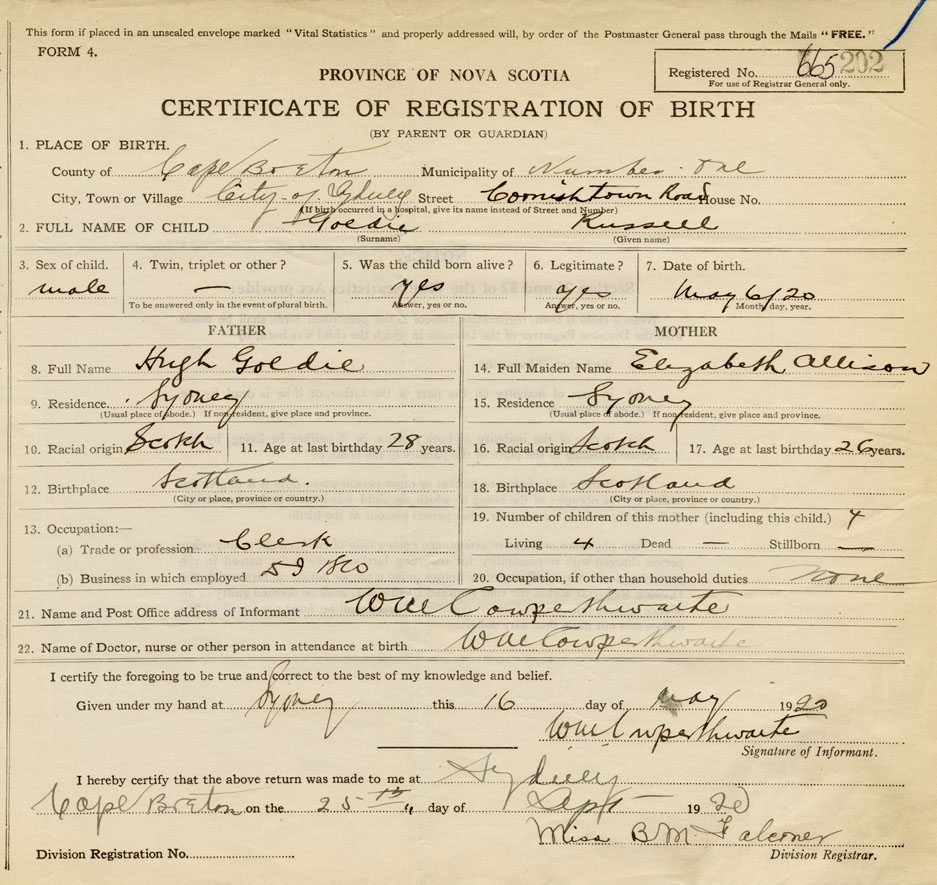 This form if placed in an unsealed envelope marked "Vital Statistics" and properly addressed will, by order of the Postmaster General pass through the Mails "FREE."
FORM 4.
Registered No. 665 202
For use of Registrar General only.
PROVINCE OF NOVA SCOTIA
CERTIFICATE OF REGISTRATION OF BIRTH
(BY PARENT OR GUARDIAN)
1. PLACE OF BIRTH.
County of Cape Breton Municipality of Number One
City, Town or Village City of Sydney Street Cornishtown Road House No.
(If birth occurred in a hospital, give its name instead of Street and Number)
2. FULL NAME OF CHILD Goldie Russell
(Surname) (Given name)
3. Sex of child. 4. Twin, triplet or other? 5. Was the child born alive? 6. Legitimate? 7. Date of birth.
male — yes yes May 6/20
To be answered only in the event of plural birth. Answer, yes or no. Answer, yes or no. Month, day, year.
FATHER MOTHER
8. Full Name Hugh Goldie 14. Full Maiden Name Elizabeth Allison
9. Residence Sydney 15. Residence Sydney
(Usual place of abode.) If non resident, give place and province. (Usual place of abode.) If non resident, give place and province.
10. Racial origin Scotch 11. Age at last birthday 28 years. 16. Racial origin Scotch 17. Age at last birthday 26 years.
12. Birthplace Scotland. 18. Birthplace Scotland
(City or place, province or country.) (City or place, province or country.)
13. Occupation:— 19. Number of children of this mother (including this child.) 4
(a) Trade or profession Clerk Living 4 Dead — Stillborn —
(b) Business in which employed 20. Occupation, if other than household duties none
21. Name and Post Office address of Informant Wm Cowperthwaite
22. Name of Doctor, nurse or other person in attendance at birth Wm Cowperthwaite
I certify the foregoing to be true and correct to the best of my knowledge and belief.
Given under my hand at Sydney this 16 day of May 1920
Wm Cowperthwaite
Signature of Informant.
I hereby certify that the above return was made to me at Sydney
Cape Breton on the 25th day of Sept 1920
Miss B M Falconer
Division Registration No. Division Registrar.